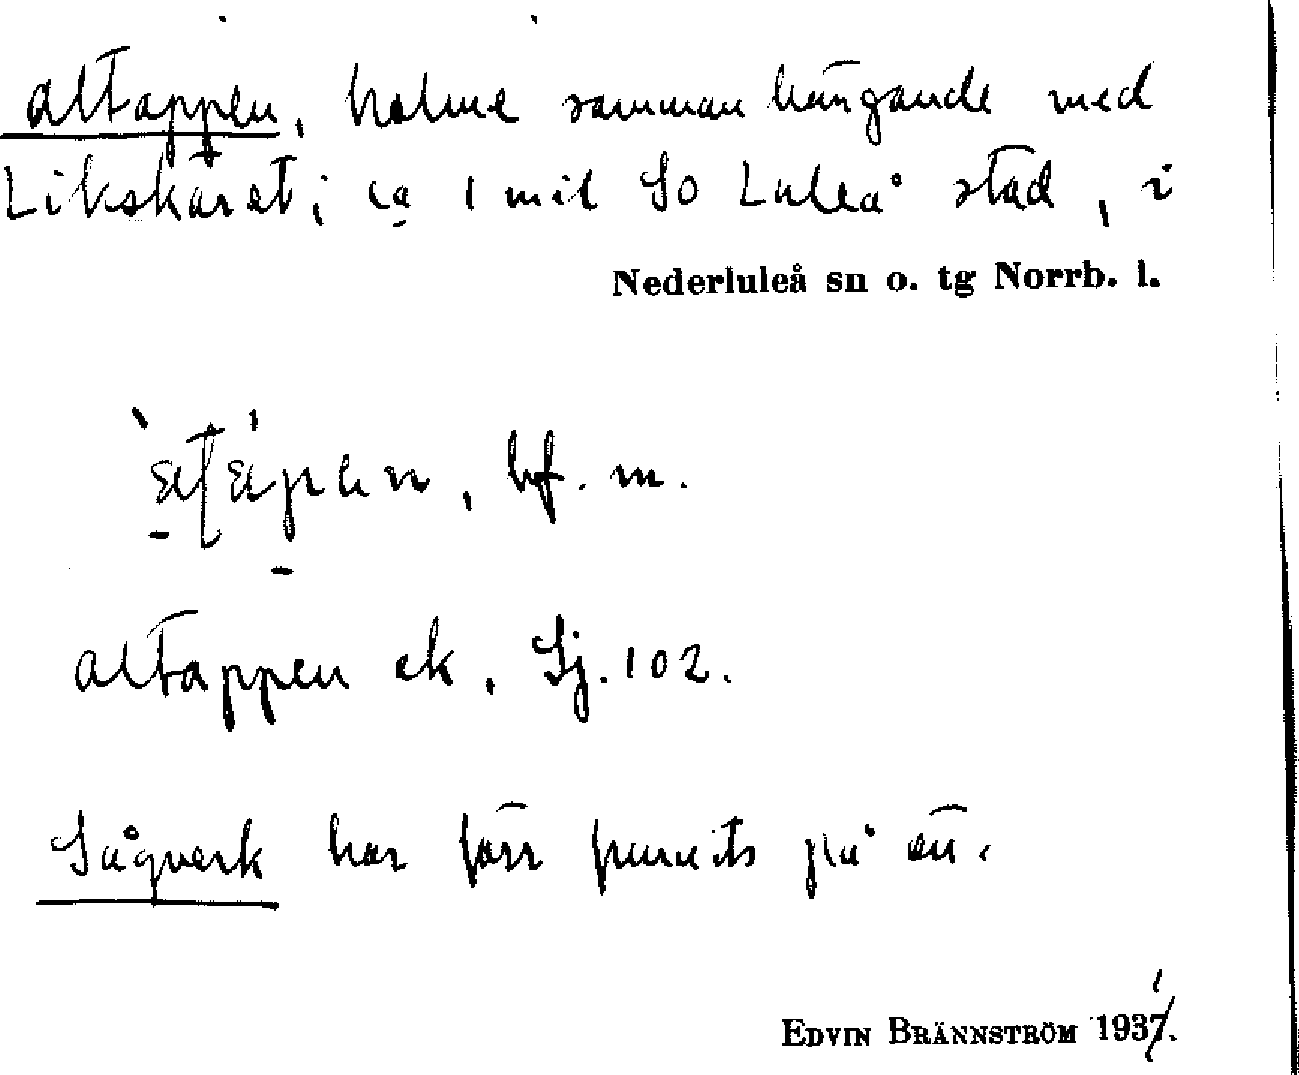 Altappen, holme sammanhängande med
Likskäret; ca 1 mil SO Luleå stad, i
Nederluleå sn o. tg Norrb. l.
bf. m.
Altappen ek. Sj. 102.
Sågverk har förr funnits på ön.
EDVIN BRÄNNSTRÖM 1937.